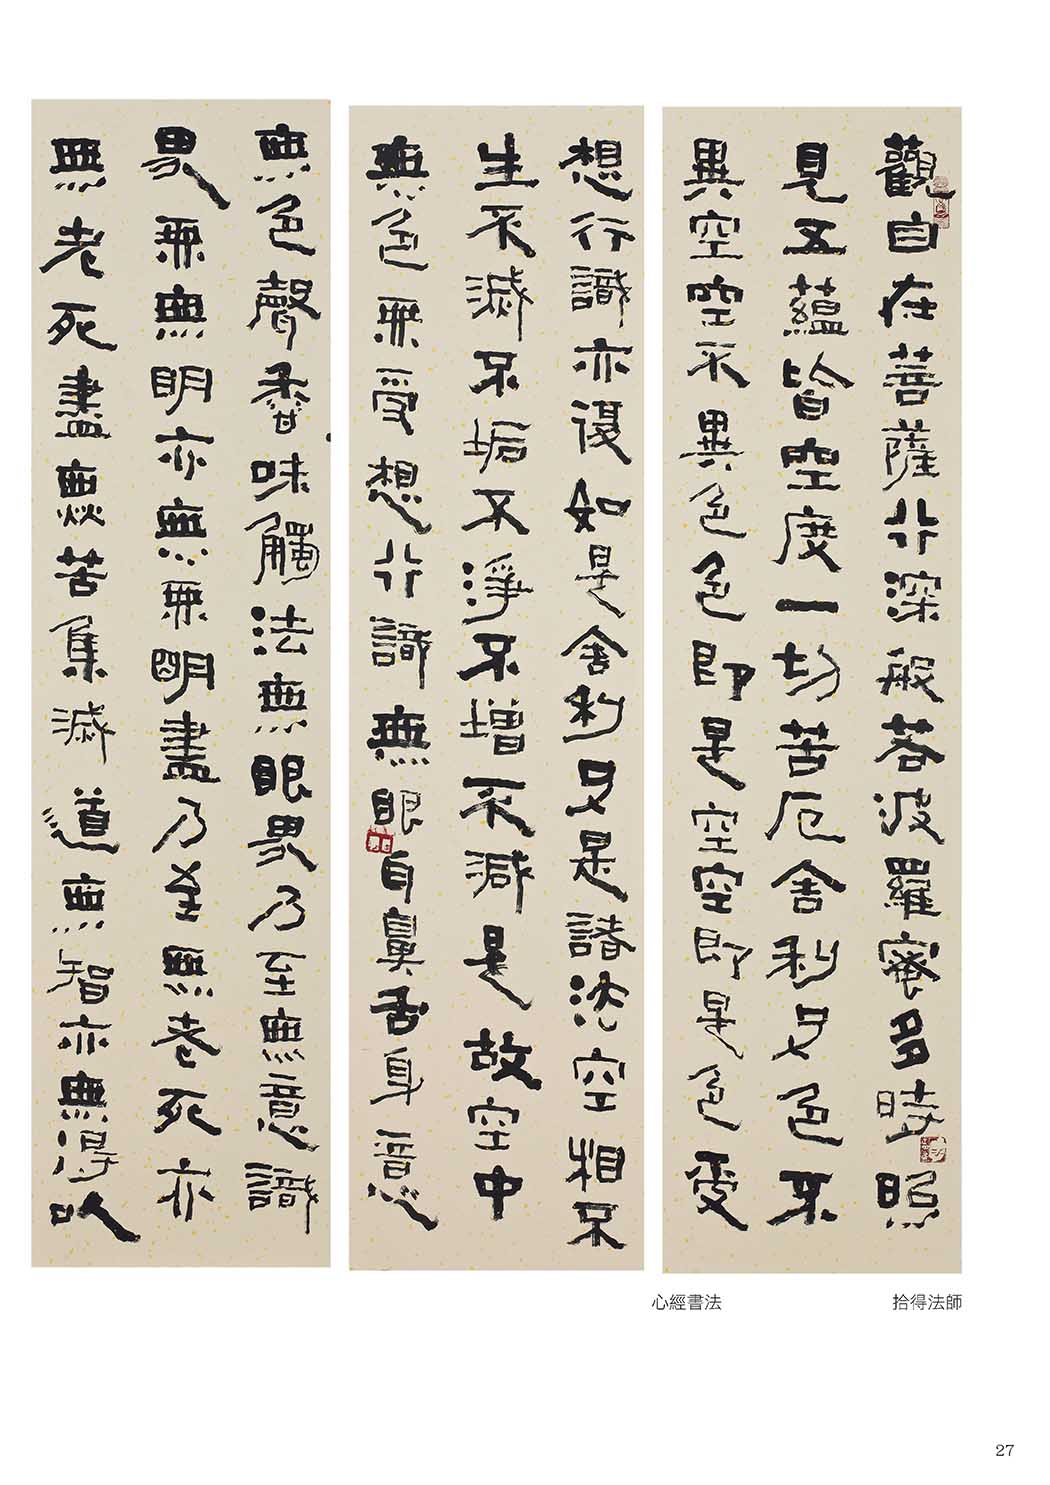 觀自在菩薩行深般若波羅蜜多時照
見五蘊皆空度一切苦厄舍利子色不
異空空不異色色即是空空即是色受
想行識亦復如是舍利子是諸法空相不
生不滅不垢不淨不增不減是故空中
無色無受想行識無眼耳鼻舌身意
無色聲香味觸法無眼界乃至無意識
界無無明亦無無明盡乃至無老死亦
無老死盡無苦集滅道無智亦無得以
心經書法
拾得法師
27